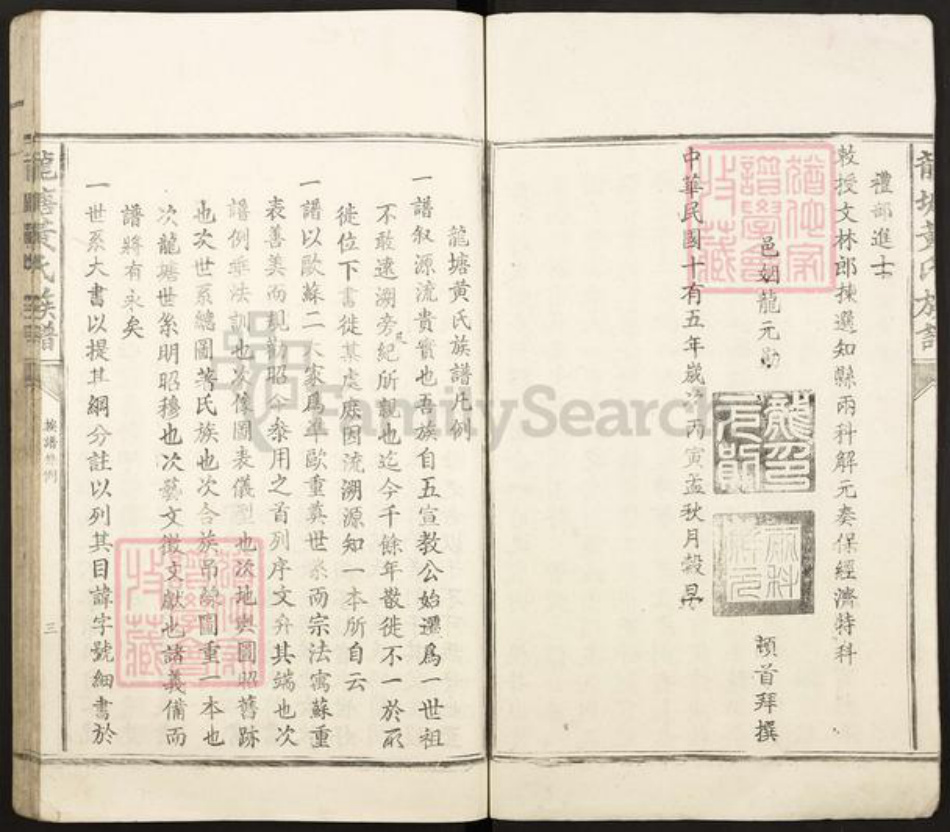 禮部進士
敕授文林郎揀選知縣兩科解元奏保經濟特科
邑姻龍元勛
頓首拜撰
龍印元勛
兩科解元
中華民國十有五年歲次丙寅孟秋月穀旦
收藏譜學會
龍塘黃氏族譜
族譜凡例
三
龍塘黃氏族譜凡例
一譜叙源流貴實也吾族自五宣教公始遷爲一世祖
不敢遠溯旁紀所親也迄今千餘年散徙不一於所
徙位下書徙某處庶因流溯源知一本所自云
一譜以歐蘇二大家爲準歐重奠世系而宗法寓蘇重
表善美而規勸昭今叅用之首列序文弁其端也次
譜例垂法訓也次像圖表儀型也次地輿圖昭舊跡
也次世系總圖著氏族也次合族吊線圖重一本也
次龍塘世系明昭穆也次藝文徵文獻也諸義備而
譜將有永矣
一世系大書以提其綱分註以列其目諱字號細書於
FamilySearch